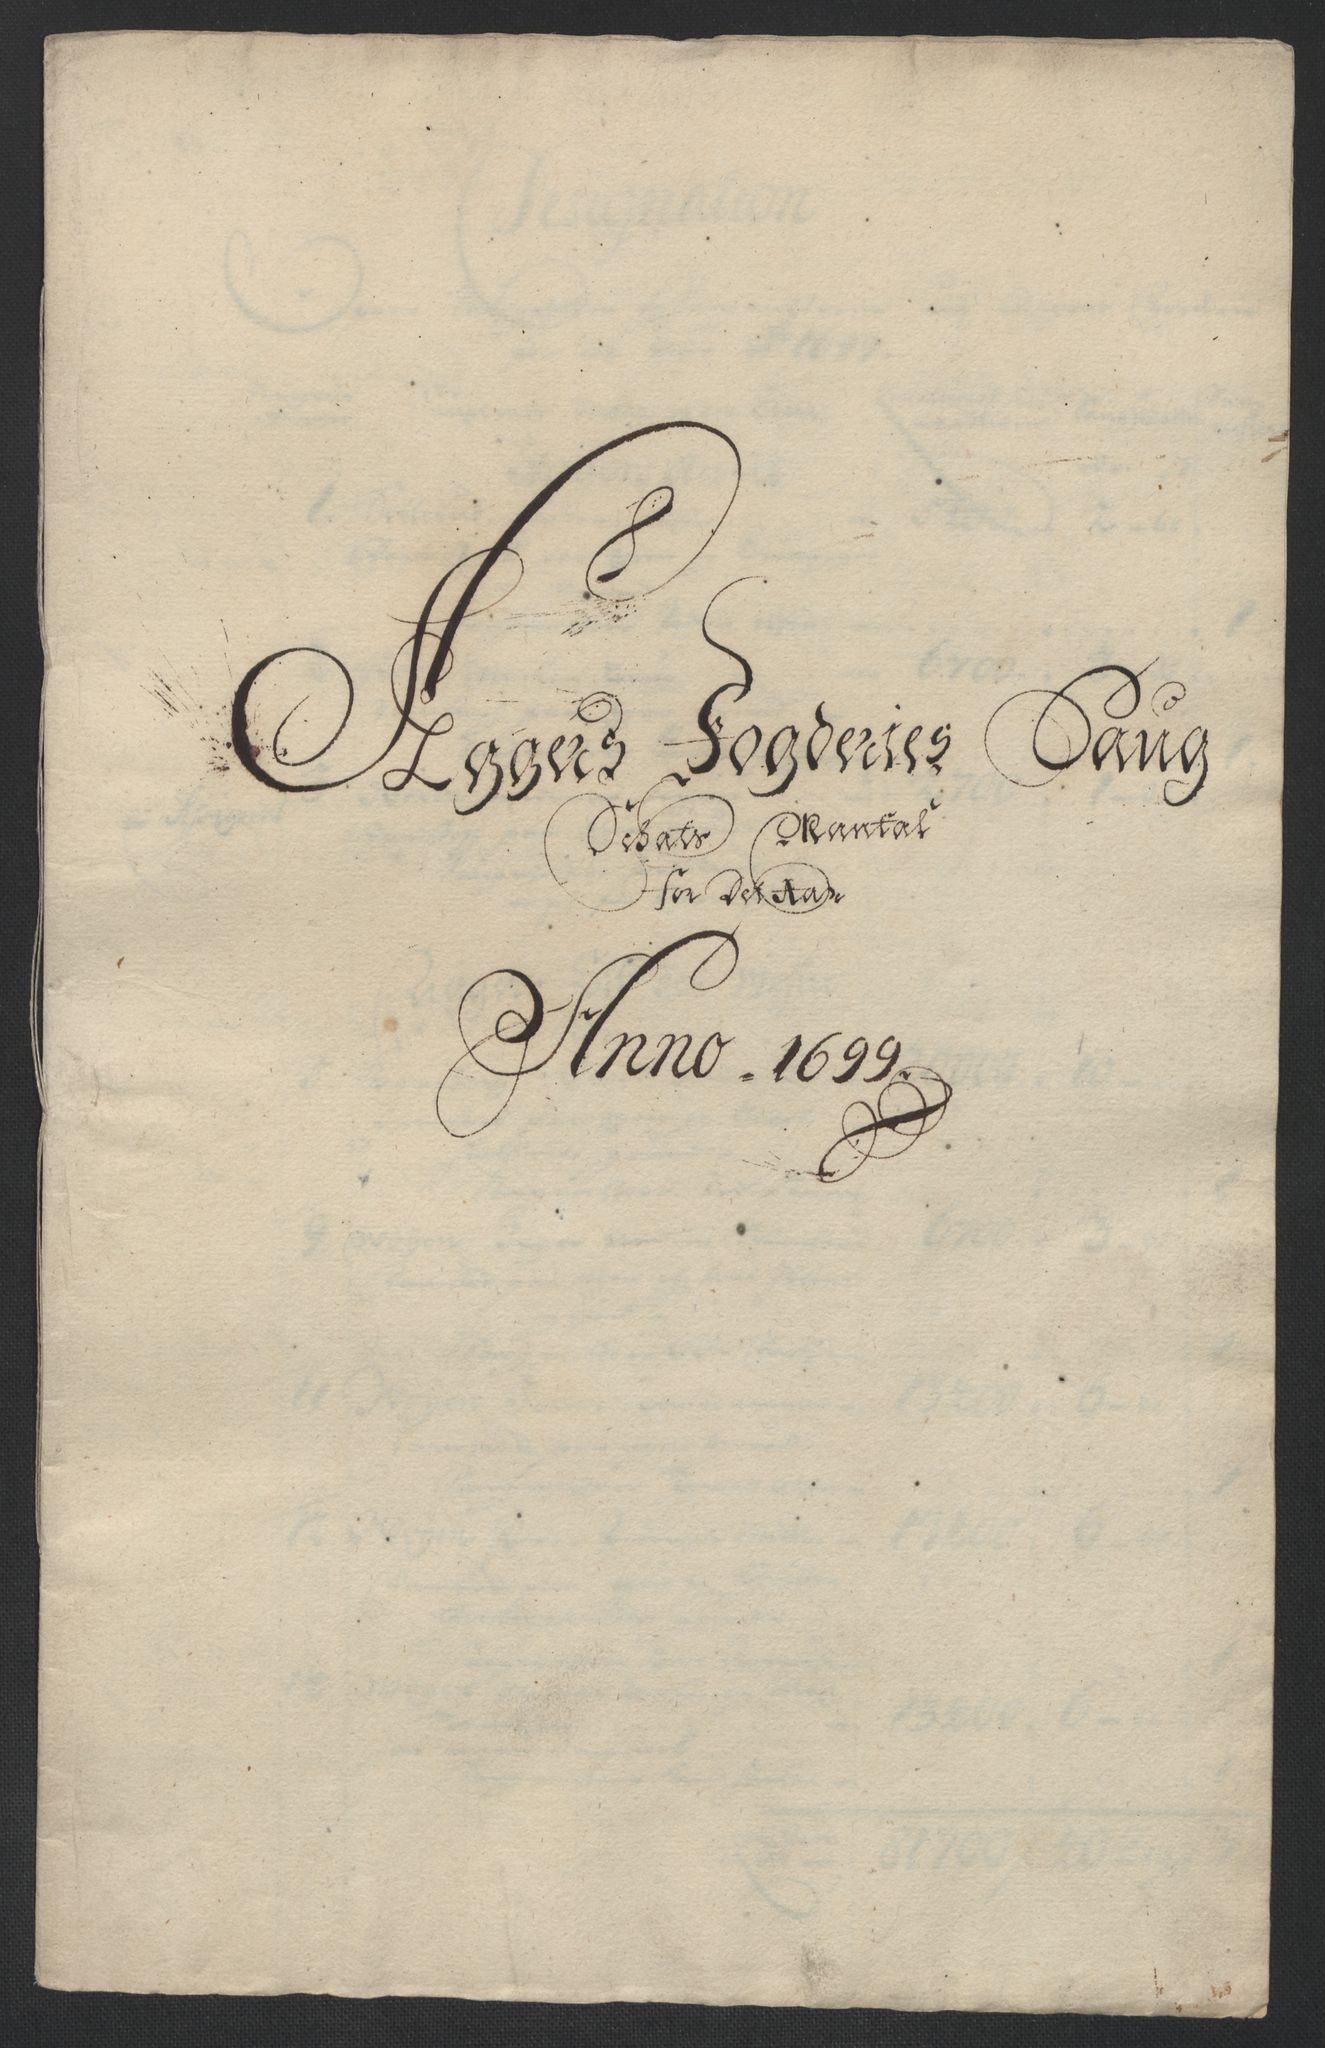 Aggers Fogderies Saug
Schats Mantal
for Det Aar
Anno. 1699.